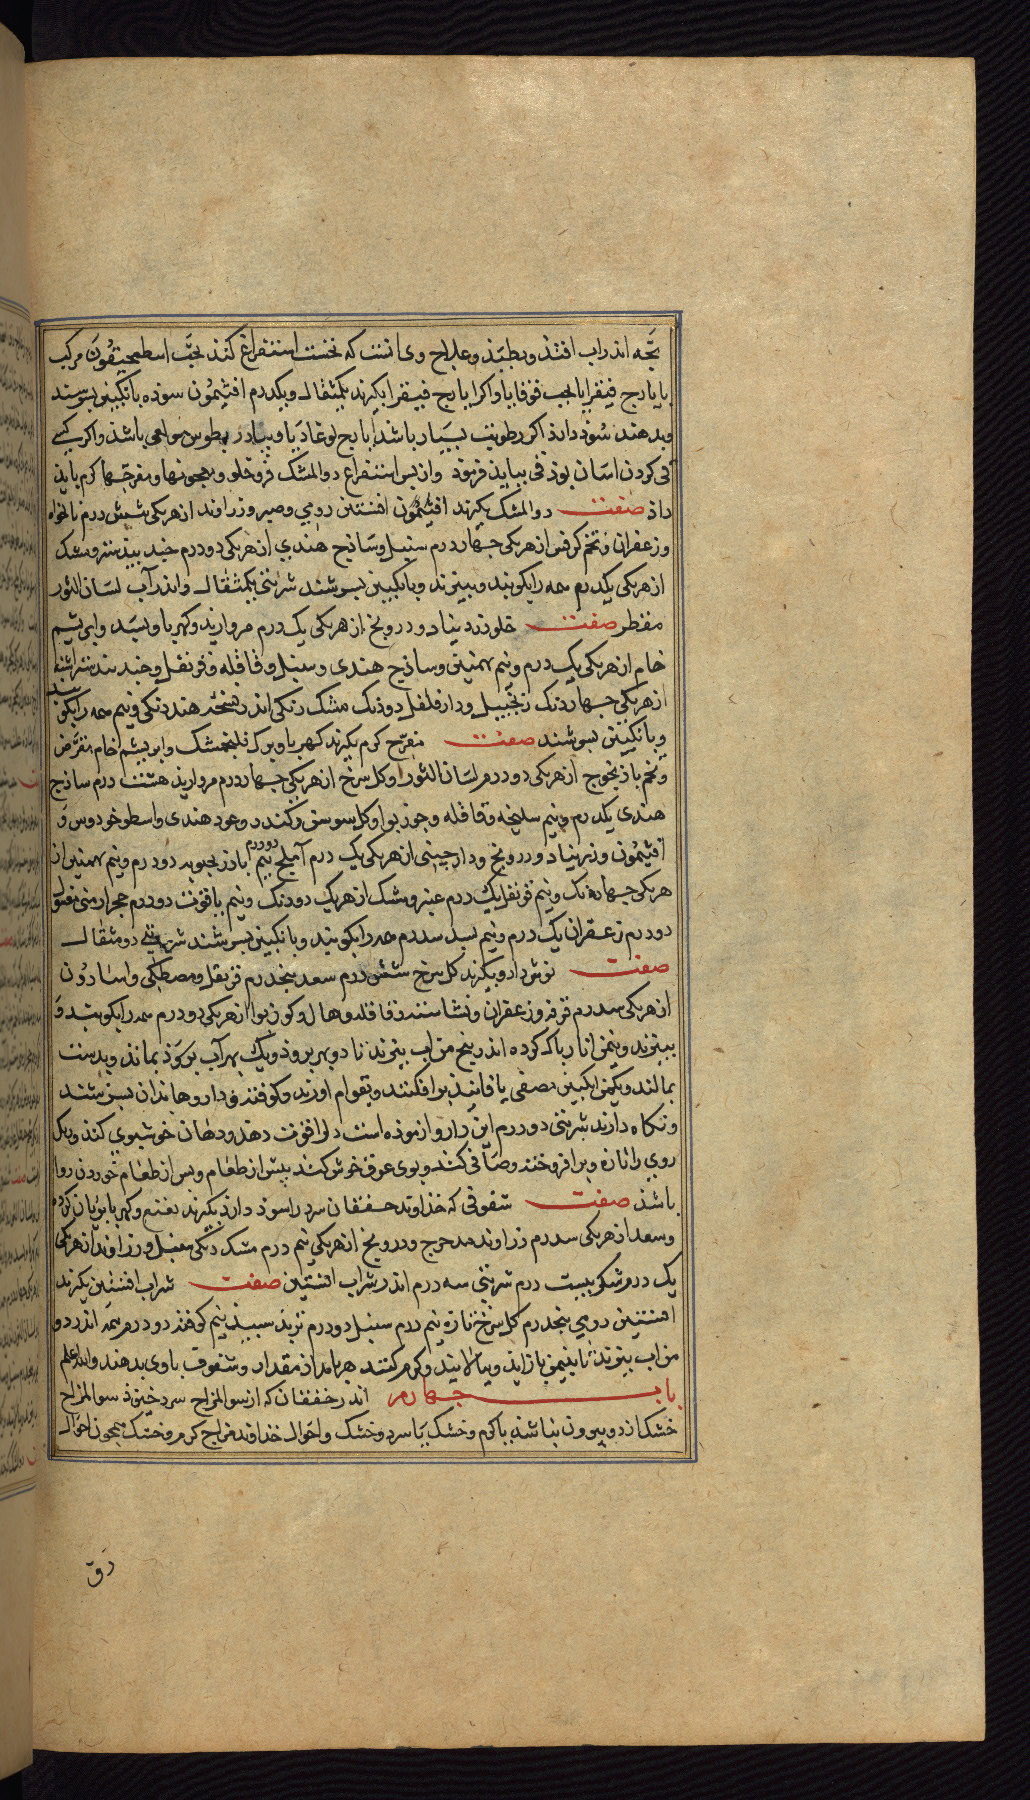 بچه اندر اب افتذ وبطبذ وعلاج وی انست که نخست استفراغ کنند بحب اسطمخیقون مرکب
بایارج فیقرا یا بحب قوقایا واکر ایارج فیقرا بکیرند یکمثقال ویکدرم افتیمون سوذه بانکبین بسرشند
وبدهند سوذ دارذ اکر رطوبت بسیار باشذ ایارج لوغاذیا ویبادر بطوس صواب باشذ واکر کسی
قی کردن اسان بوذ قی بباید فرموذ وازپس استفراغ دوالمشک تلخ وحلو ومعجونها ومفرحها کرم باید
داذ صفت دوالمشک بکیرند افتیمون افسنتین رومی وصبر وزراوند ازهریکی شش درم نانخواه
وزعفران وتخم کرفس ازهریکی چهاردرم سنبل وساذج هندی ازهریکی دودرم جندبیدستر ومشک
ازهریکی یکدرم همه رابکوبند وببیزند وبانکبین بسرشند شربتی یکمثقال واندر آب لسان الثور
مقطر صفت حلو زرنباد ودرونج ازهریکی یک درم مروارید وکهربا وبسد وابریشم
خام ازهریکی یک درم ونیم بهمنین وساذج هندی وسنبل وقاقله وقرنفل وجندبیدستر اشنه
ازهریکی چهاردنک زنجبیل ودارفلفل دودنک مشک دنکی اندر نسخه هند دنکی ونیم همه رابکوبند
وبانکبین بسرشند صفت مفرح کرم بکیرند کهربا وبرک فلنجمشک وابریشم خام مقرض
وتخم باذرنجوج ازهریکی دودرم لسان الثور وکل سرخ ازهریکی چهاردرم مروارید هشت درم ساذج
هندی یکدرم ونیم سلیخه وقاقله وجوزبوا وکل سوسن وکندر وعود هندی واسطوخودوس و
افتیمون وزرنباد ودرونج ودارچینی ازهریکی یک درم آملج نیم دودرم باذرنجبویه دودرم ونیم بهمنین از
هریکی چهاردنک ونیم قرنفل یک درم عنبر ومشک ازهریک دودنک ونیم یاقوت دودرم حجر ارمنی مغسول
دودرم زعفران یک درم ونیم بسد سه درم همه رابکوبند وبانکبین بسرشند شربتی دومثقال
صفت نوش دارو بکیرند کل سرخ شش درم سعد پنجدرم قرنفل ومصطکی واسارون
ازهریکی سه درم قرفه وزعفران ونشاسته وقاقله وهال وکوزبوا ازهریکی دودرم همه رابکوبند و
ببیزند ونیم من انار پاک کرده اندر پنج من اب بپزند تا دوبهر بروذ ویک بهر آب برکوذ بماند وبدست
بمالند ویکمن انکبین مصفی یا فانیذ برافکنند وبقوام اورند وکوفته داروها بدان بسرشند
ونکاه دارند شربتی دودرم این دارو ازموذه است دلرا قوت دهذ ودهان خوشبوی کند وکل
روی را تازه وبرافروخته وصافی کند وبوی عرق خوش کند پیش از طعام وپس از طعام خوردن روا
باشذ صفت سفوفی که خذاوند خفقان سرد را سوذ دارذ بکیرند نعنع وکهربا بریان کرده
وسعد ازهریکی سه درم زراوند مدحرج ودرونج ازهریکی نیم درم مشک دنکی سنبل وزراوند ازهریکی
یک درم شکر بیست درم شربتی سه درم اندر شراب افسنتین صفت شراب افسنتین بکیرند
افسنتین رومی پنجدرم کل سرخ تازه نیم درم سنبل دودرم تربد سپید نیم کوفته دودرم همه اندر دو
من اب بپزند تا بنیمن بازایذ وبپالایند وکرم کنند هر بامداذ مقدار وسفوف باوی بدهند والله اعلم
باب چهارم اندر خفقان که از سوالمزاج سرد خیزذ سوالمزاج
خشک از دو بیرون نباشذ یا کرم وخشک یا سرد وخشک واحوال خذاوند مزاج کرم وخشک همچون احوال
دق